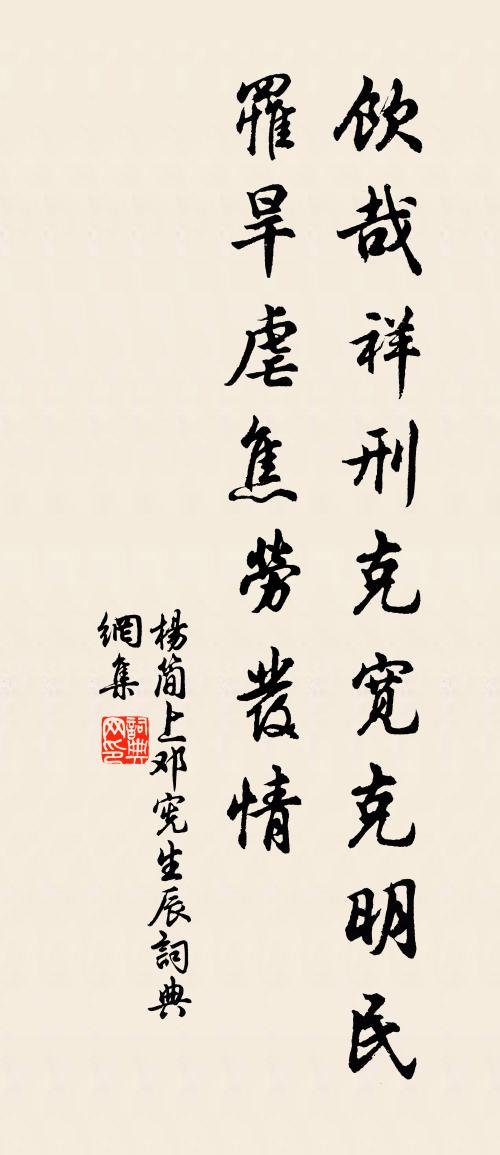 欽哉祥刑克寬克明民
罹旱虐焦勞發情
楊简上邓宪生辰詞典
網集
詞典网印